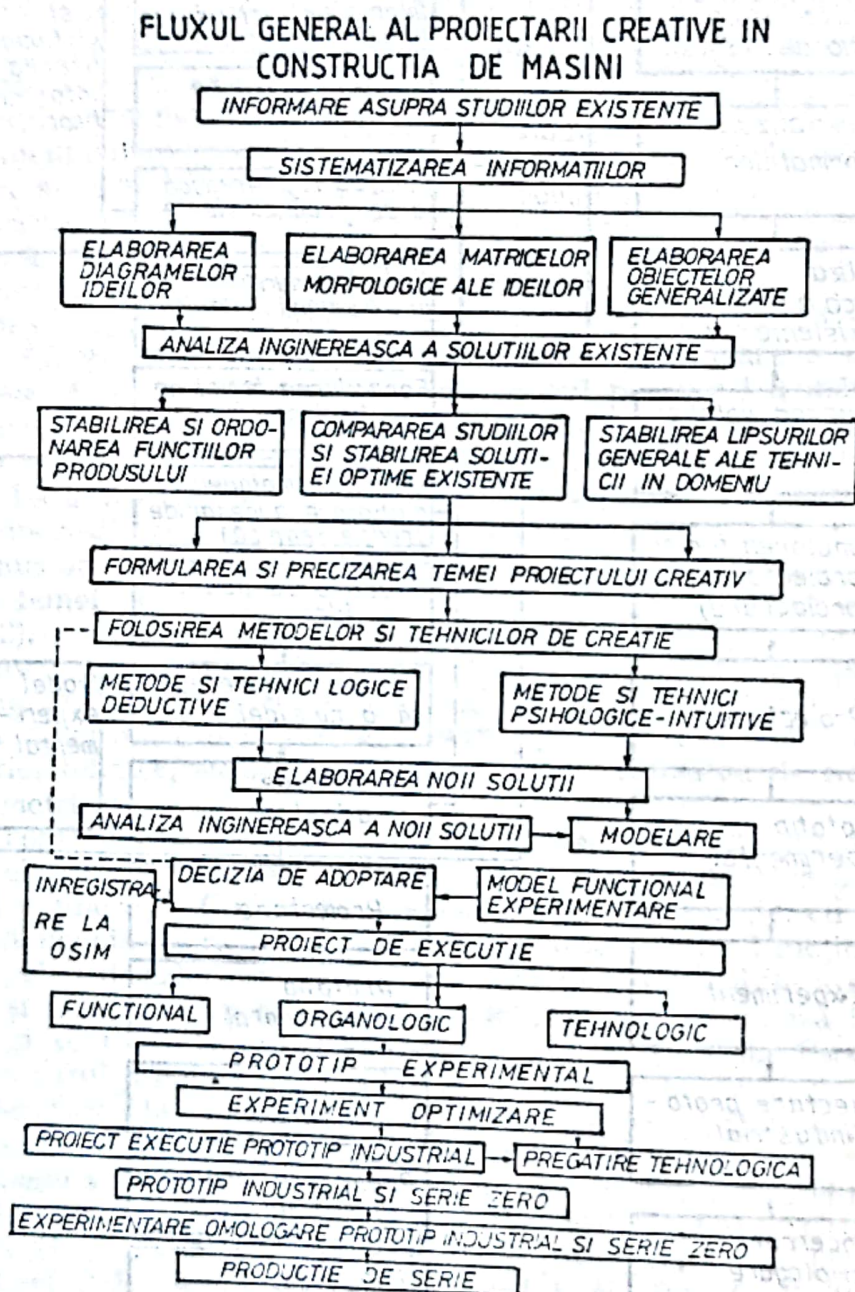 FLUXUL GENERAL AL PROIECTARII CREATIVE IN
CONSTRUCTIA DE MASINI
INFORMARE ASUPRA STUDIILOR EXISTENTE
SISTEMATIZAREA INFORMATIILOR
ELABORAREA
DIAGRAMELOR
IDEILOR
ELABORAREA MATRICELOR
MORFOLOGICE ALE IDEILOR
ELABORAREA
OBIECTELOR
GENERALIZATE
ANALIZA INGINEREASCA A SOLUTIILOR EXISTENTE
STABILIREA SI ORDO-
NAREA FUNCTIILOR
PRODUSULUI
COMPARAREA STUDIILOR
SI STABILIREA SOLUTI-
EI OPTIME EXISTENTE
STABILIREA LIPSURILOR
GENERALE ALE TEHNI-
CII IN DOMENIU
FORMULAREA SI PRECIZAREA TEMEI PROIECTULUI CREATIV
FOLOSIREA METODELOR SI TEHNICILOR DE CREATIE
METODE SI TEHNICI LOGICE
DEDUCTIVE
METODE SI TEHNICI
PSIHOLOGICE-INTUITIVE
ELABORAREA NOII SOLUTII
ANALIZA INGINEREASCA A NOII SOLUTII
MODELARE
INREGISTRA-
RE LA
OSIM
DECIZIA DE ADOPTARE
MODEL FUNCTIONAL
EXPERIMENTARE
PROIECT DE EXECUTIE
FUNCTIONAL
ORGANOLOGIC
TEHNOLOGIC
PROTOTIP EXPERIMENTAL
EXPERIMENT OPTIMIZARE
PROIECT EXECUTIE PROTOTIP INDUSTRIAL
PREGATIRE TEHNOLOGICA
PROTOTIP INDUSTRIAL SI SERIE ZERO
EXPERIMENTARE OMOLOGARE PROTOTIP INDUSTRIAL SI SERIE ZERO
PRODUCTIE DE SERIE